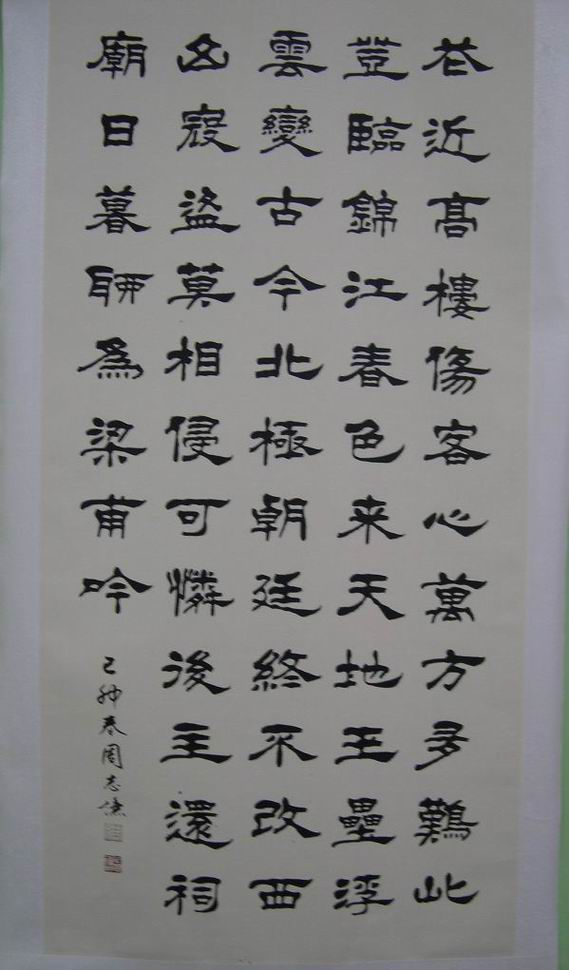 花近髙樓傷客心萬方多難此
登臨錦江春色来天地玉壘浮
雲變古今北極朝廷終不改西
山寇盜莫相侵可憐後主還祠
廟日暮聊為梁甫吟
己卯春周志